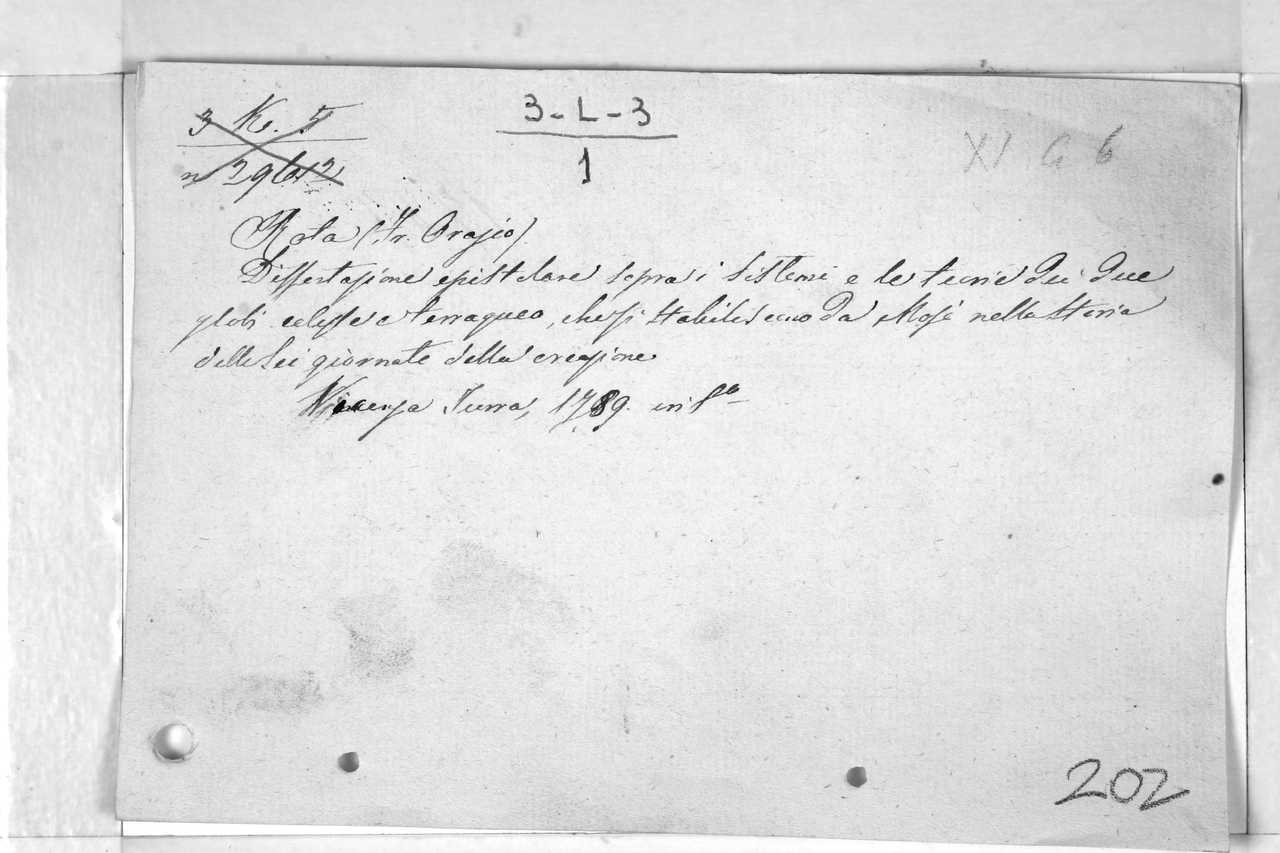 3 K. 5
n 296.12
3-L-3
1
XI G 6
Rota (Fr. Orazio)
Dissertazione epistolare sopra i sistemi e le teorie dei due
globi celeste e terraqueo, che si stabiliscono da Mosè nella storia
delle sei giornate della creazione
Vicenza Turra, 1789. in 8º
202